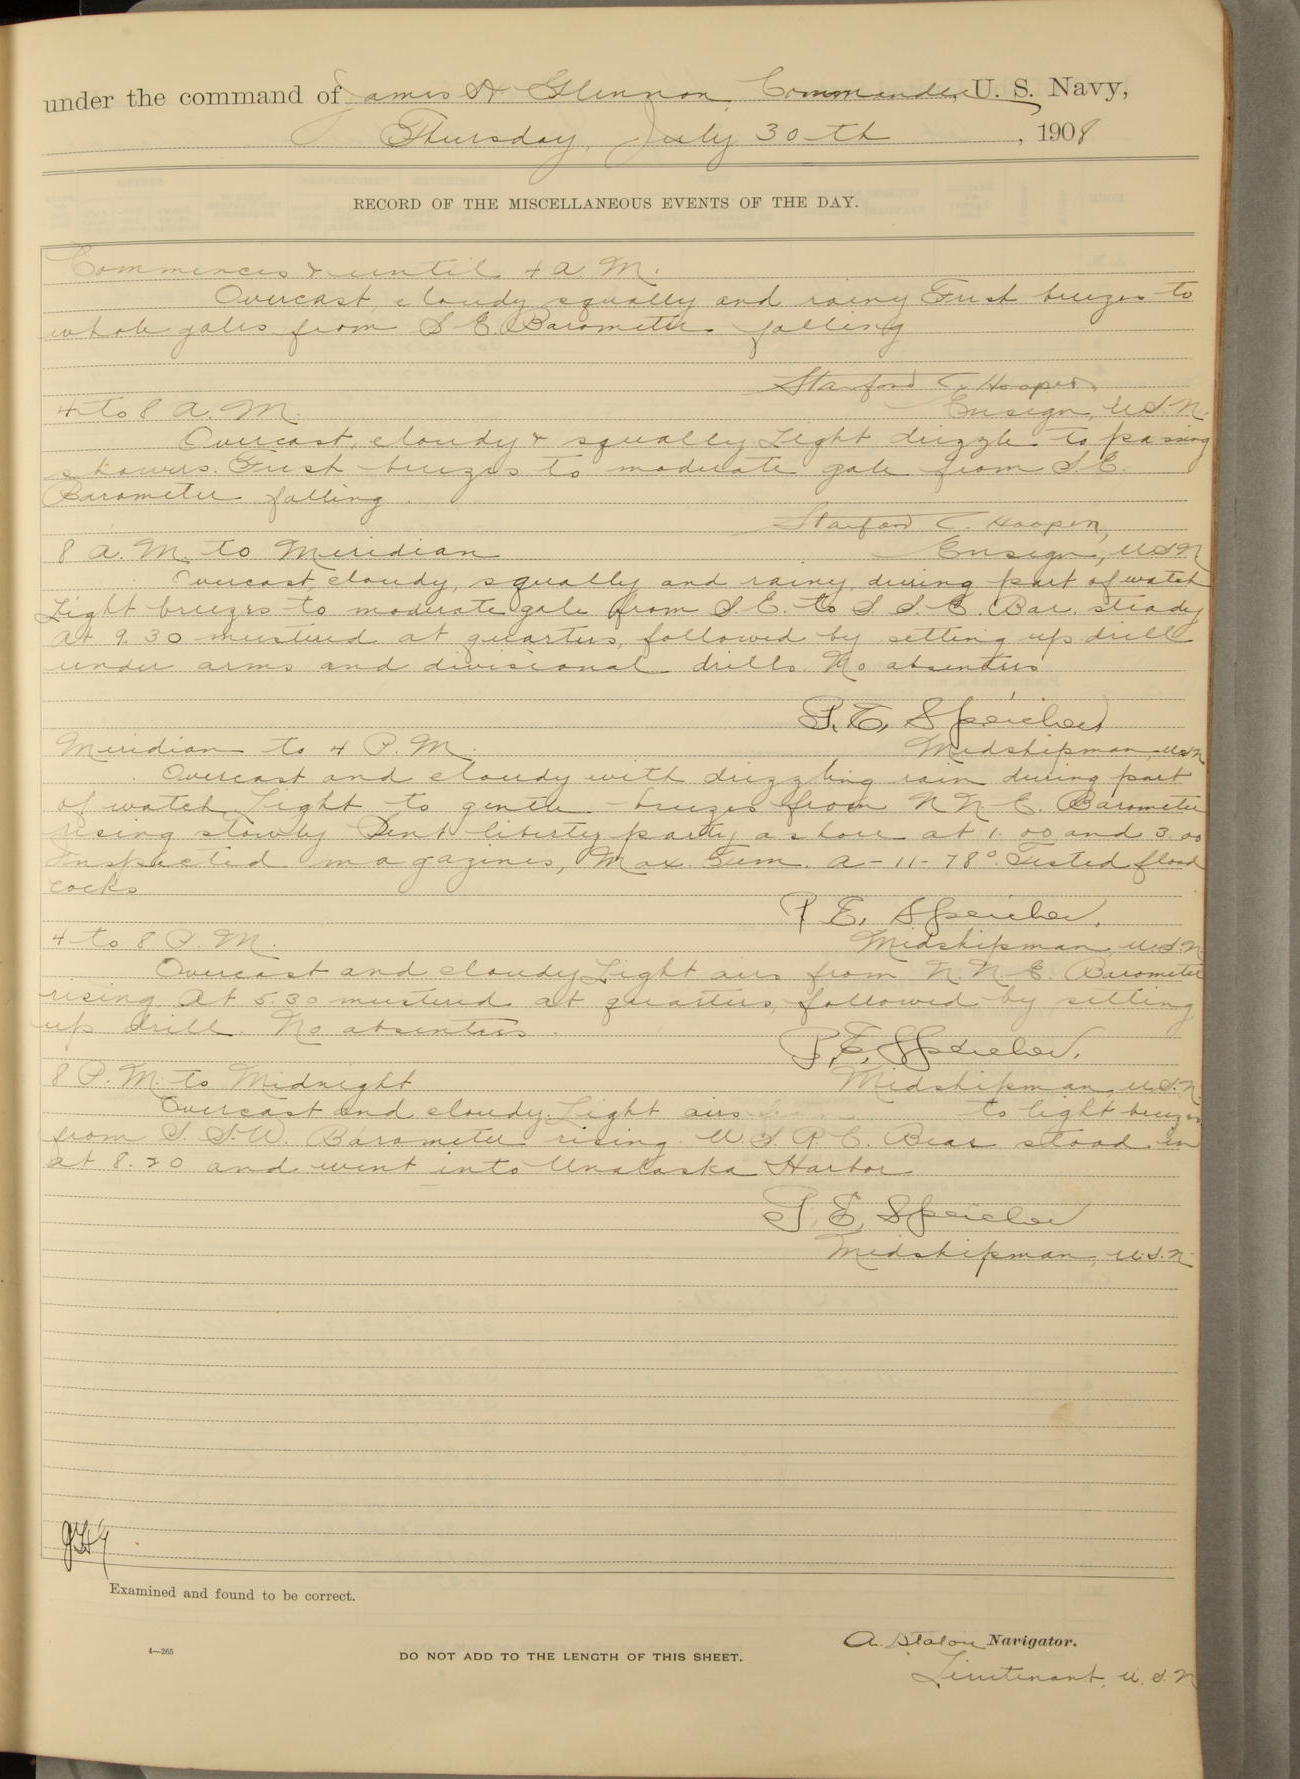 under the command of James H Glennon, Commander, U. S. Navy,
Thursday, July 30th, 1908
RECORD OF THE MISCELLANEOUS EVENTS OF THE DAY.
Commences & until 4 A. M.
Overcast, cloudy squally and rainy Fresh breezes to
whole gales from S E. Barometer falling
Stanford C. Hooper
4 to 8 A. M.
Ensign, U.S.N.
Overcast, cloudy & squally Light drizzle to passing
showers. Fresh breezes to moderate gale from S.E.
Barometer falling.
Stanford C. Hooper,
8 A. M. to Meridian
Ensign, U.S.N
Overcast, cloudy, squally and rainy during part of watch
Light breezes to moderate gale from S. E. to S. S. E. Bar. steady
At 9.30 mustered at quarters, followed by setting up drill
under arms and divisional drills. No absentees
P. E. Speicher
Meridian to 4 P. M.
Midshipman, U.S.N
Overcast and cloudy with drizzling rain during part
of watch. Light to gentle breezes from N N. E. Barometer
rising slowly Sent liberty party ashore at 1.00 and 3.00
Inspected magazines, Max. Tem. A-11-78°. Tested flood
cocks
P E. Speicher.
4 to 8 P. M.
Midshipman, U.S.N
Overcast and cloudy Light airs from N. N. E. Barometer
rising At 5.30 mustered at quarters, followed by setting
up drill. No absentees.
P. E. Speicher.
8 P. M. to Midnight
Midshipman, U.S.N.
Overcast and cloudy. Light airs to light breezes
from S. S. W. Barometer rising. U. S. R. C. Bear stood in
at 8.20 and went into Unalaska Harbor
P. E. Speicher
Midshipman, U.S.N.
JHG
Examined and found to be correct.
A. Staton Navigator.
4—265
DO NOT ADD TO THE LENGTH OF THIS SHEET.
Lieutenant, U. S. N